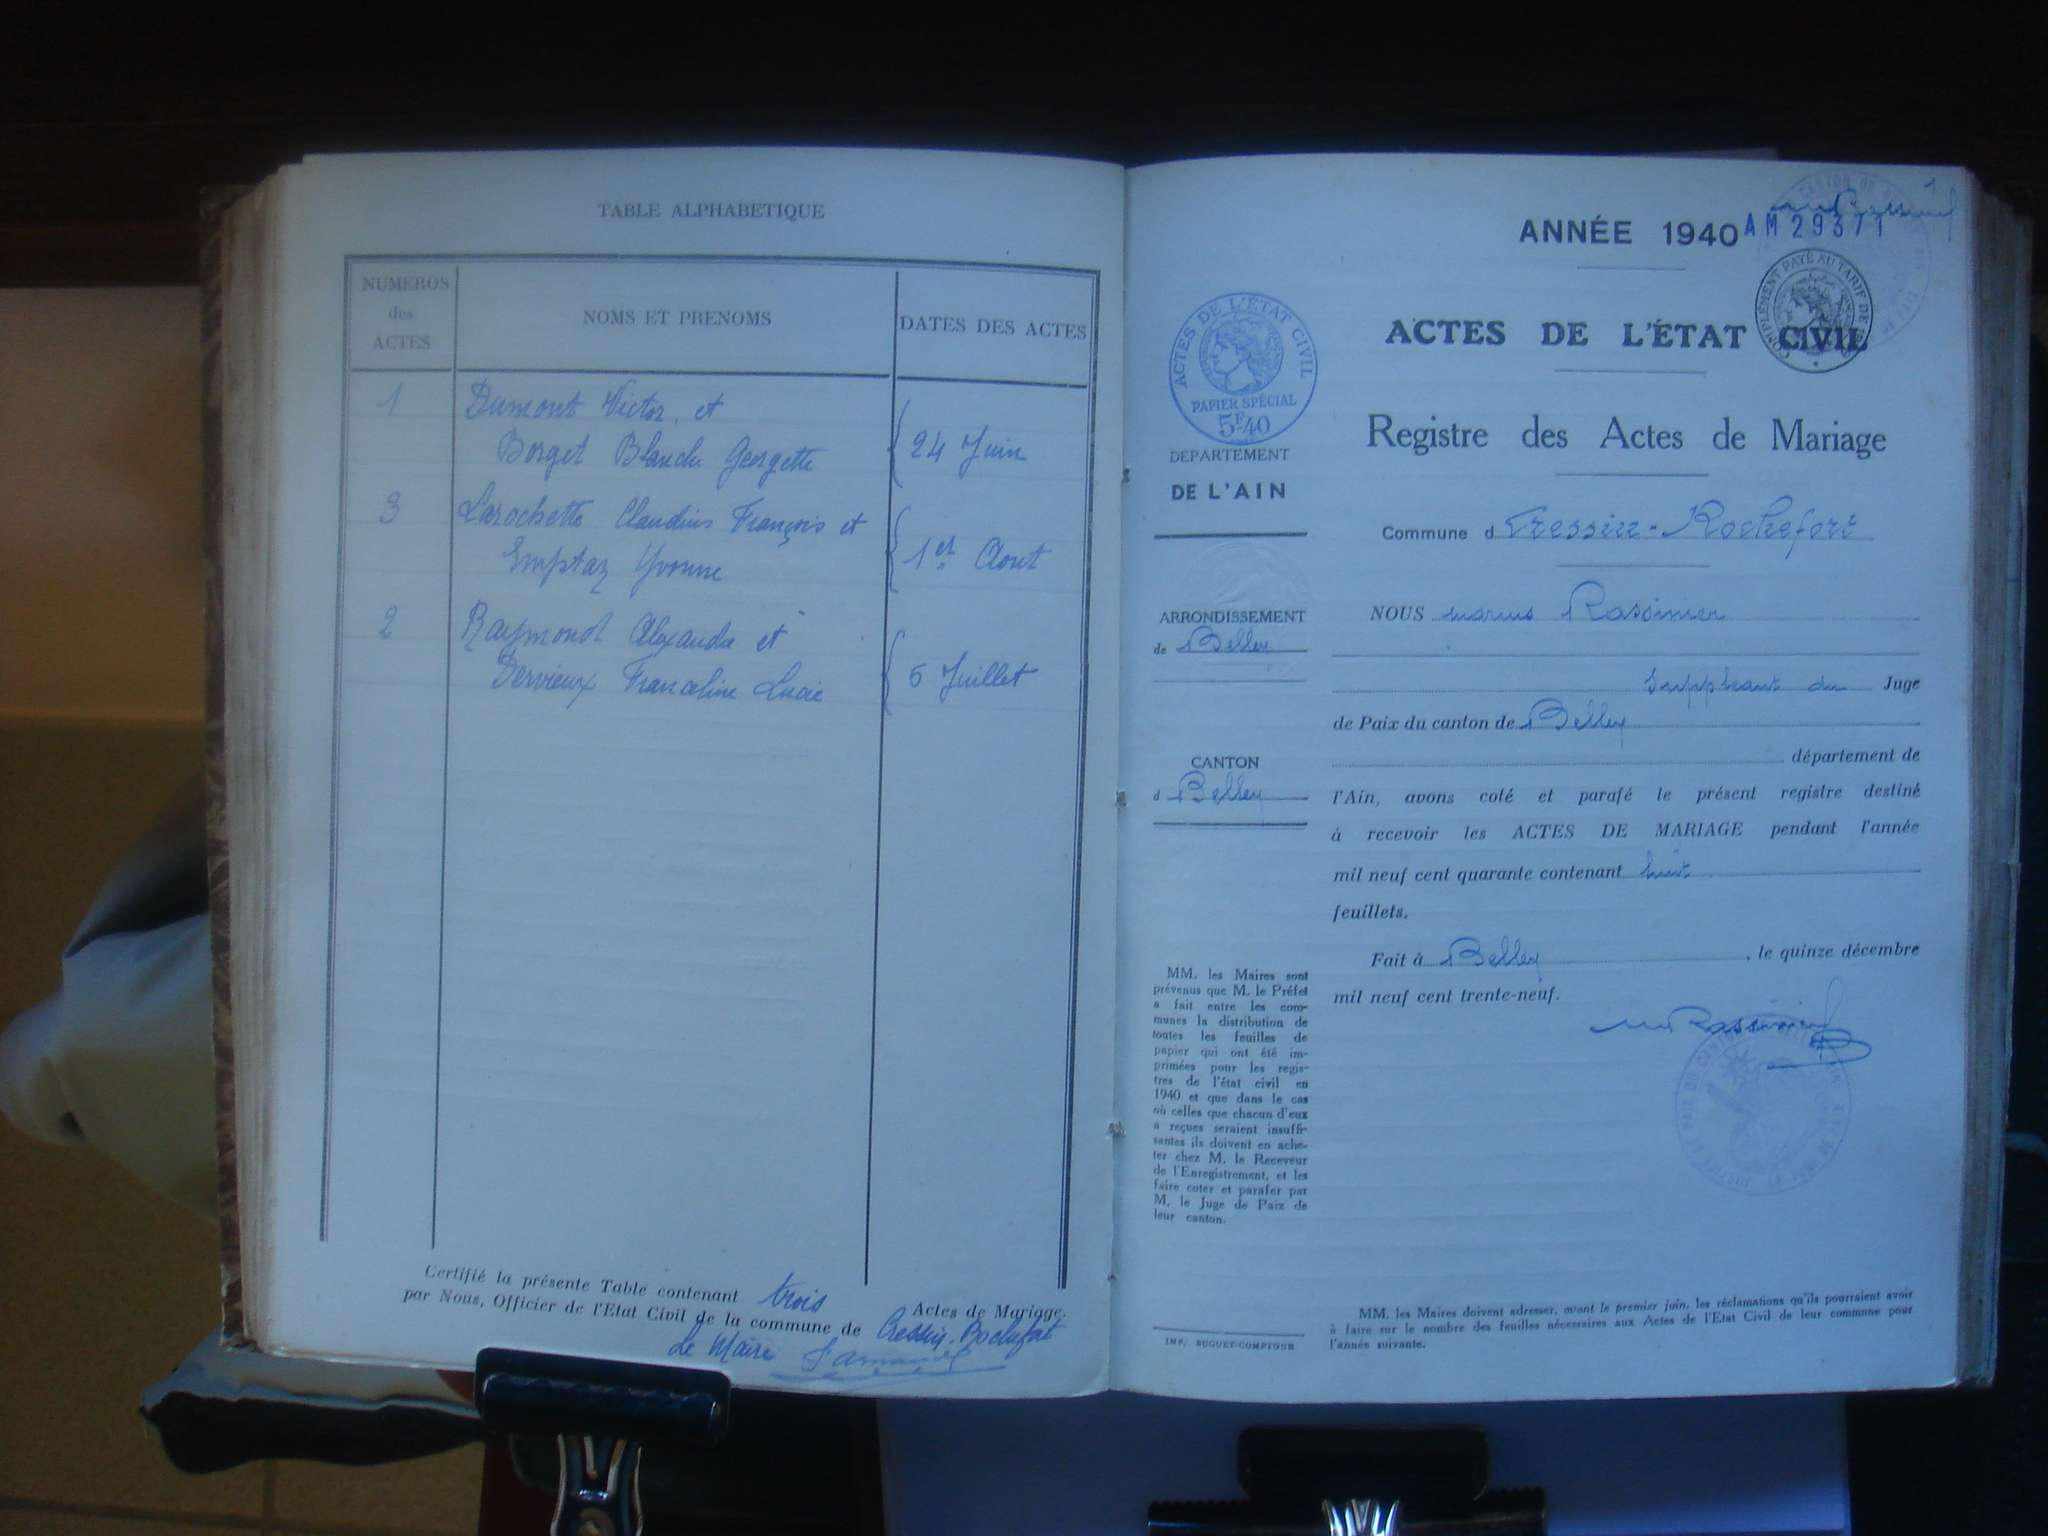 TABLE ALPHABETIQUE
NUMEROS
des
ACTES
NOMS ET PRENOMS
DATES DES ACTES
1 Dumont Victor, et
Borget Blanche Georgette
24 Juin
3 Larochette Claudius François et
Emptaz Yvonne
1er Aout
2 Raymond Alexandre et
Dervieux Franceline Lucie
6 Juillet
Certifié la présente Table contenant trois Actes de Mariage.
par Nous, Officier de l'Etat Civil de la commune de Cressin-Rochefort
Le Maire
1
ANNÉE 1940
AM29371
COMPLÉMENT PAYÉ AU TARIF DE
ACTES DE L'ÉTAT CIVIL
PAPIER SPÉCIAL
5F.40
DEPARTEMENT
DE L'AIN
ARRONDISSEMENT
de Belley
CANTON
d Belley
MM. les Maires sont
prévenus que M. le Préfet
a fait entre les com-
munes la distribution de
toutes les feuilles de
papier qui ont été im-
primées pour les regis-
tres de l'état civil en
1940 et que dans le cas
où celles que chacun d'eux
a reçues seraient insuffi-
santes ils doivent en ache-
ter chez M. le Receveur
de l'Enregistrement, et les
faire coter et parafer par
M. le Juge de Paix de
leur canton.
IMP. SUQUET-COMPTOUR
ACTES DE L'ÉTAT CIVIL
Registre des Actes de Mariage
Commune d Cressin-Rochefort
NOUS Marius Rassinier
Suppléant du Juge
de Paix du canton de Belley
département de
l'Ain, avons coté et parafé le présent registre destiné
à recevoir les ACTES DE MARIAGE pendant l'année
mil neuf cent quarante contenant huit
feuillets.
Fait à Belley, le quinze décembre
mil neuf cent trente-neuf.
MM. les Maires doivent adresser, avant le premier juin, les réclamations qu'ils pourraient avoir
à faire sur le nombre des feuilles nécessaires aux Actes de l'Etat Civil de leur commune pour
l'année suivante.